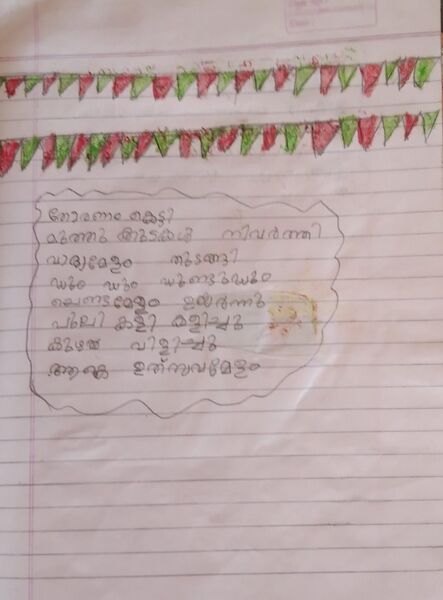 തോരണം കെട്ടി
മുത്തു കുടകൾ നിവർത്തി
വാദ്യമേളം തുടങ്ങി
ഡും ഡും ഡുണ്ടുഡും
ചെണ്ടമേളം ഉയർന്നു
പുലി കളി കളിച്ചു
കുഴൽ വിളിച്ചു
ആകെ ഉത്സവമേളം